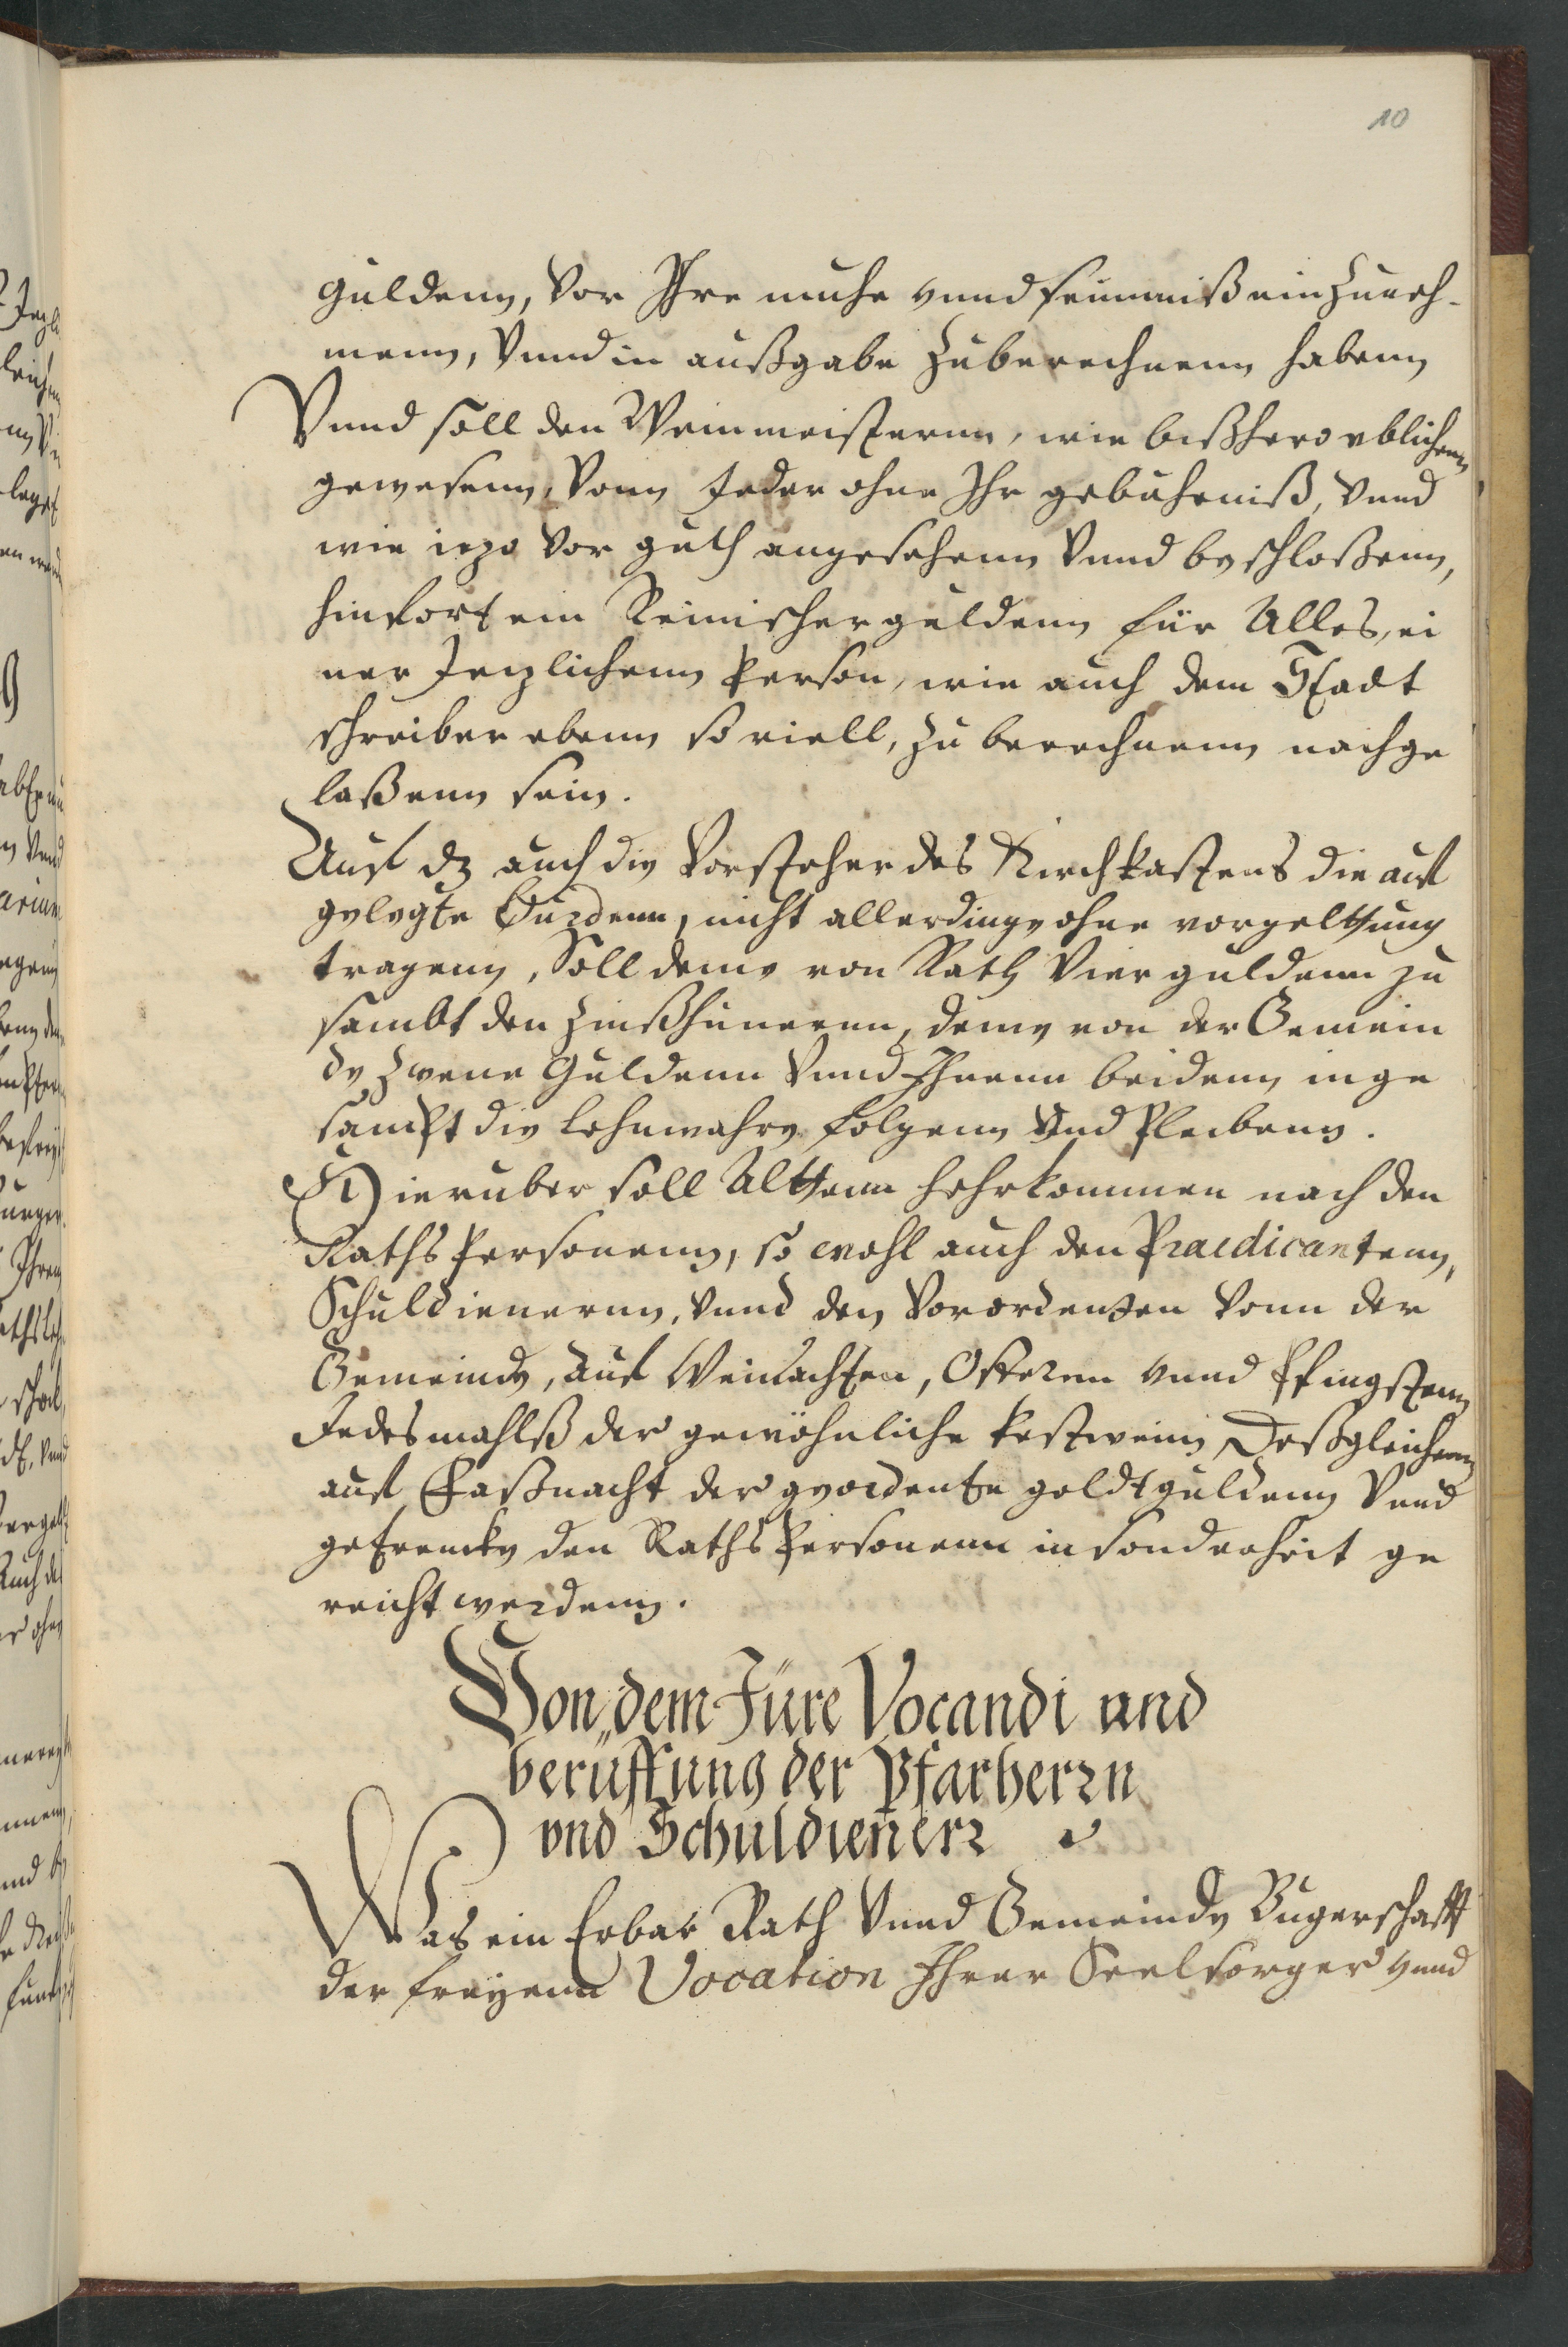 10
guldenn, Vor Ihre muhe vnnd seumniß einzuneh-
menn, Vnnd in außgabe zuberechnenn habenn
Vnnd soll den Weinmeisternn, wie bißhero vblichenn
gewesenn, Vonn Jeder ohne Ihr gebuhrniß, Vnnd
wie iezo Vor guth angesehenn Vnnd beschloßenn,
hinfort ein Reinischer guldenn für Alles, ei
ner Jezlichenn Person, wie auch dem Stadt
schreiber ebenn so viell, zu berechnenn nachge
laßenn sein.
Auf dz auch die Vorsteher des Kirchkastens die auf
gelegte Burdenn, nicht allerdinge ohne vorgeltung
tragenn, Soll deme von Rath Vier guldenn zu
sambt den Zinßhunernn, deme von der Gemein
de Zwene Guldenn Vnnd Ihnenn beidenn inge
sampt die Lehnwahre folgenn Vnd Pleibenn.
Hieruber soll Altem hehrkommen nach den
Raths Personenn, so wohl auch den Praedicantenn,
Schuldienernn, Vnnd den Verordenten Vonn der
Gemeinde, Auf Weinachten, Osternn vnnd Pfingstenn
Jedesmahlß der gewöhnliche Festwein, Deßgleichenn
auf Faßnacht der geordente goldtguldenn Vnnd
getrencke den Raths Personenn in sonderheit ge
reicht werdenn.
Von dem Jüre Vocandi und
berüffung der Pfarherrn
vnd Schuldiener
Was ein Erbar Rath Vnnd Gemeinde Bugerschafft
der freyenn Vocation Ihrer Seelsorger vnnd